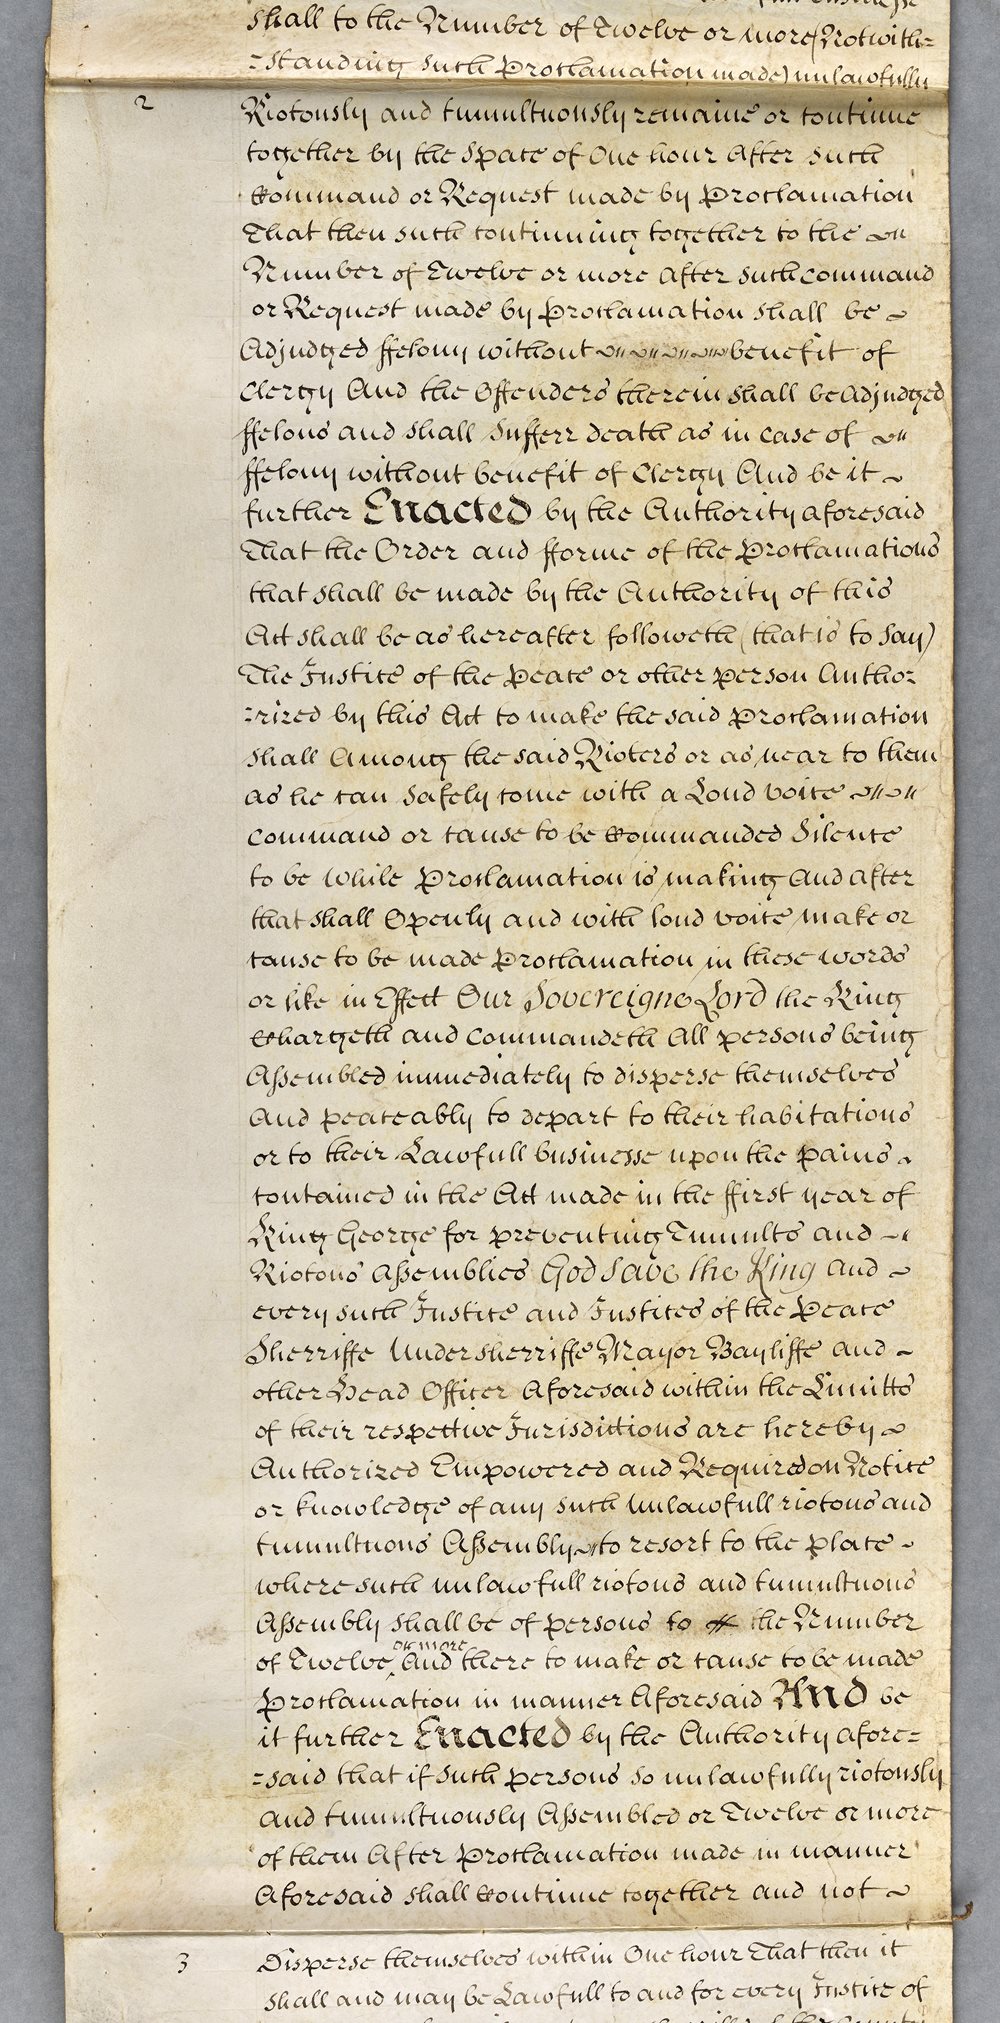 shall to the Number of Twelve or more (Notwith=
=standing such Proclamation made) unlawfully
2
Riotously and tumultuously remaine or continue
together by the space of One hour After such
Command or Request made by Proclamation
That then such continuing together to the
Number of Twelve or more After such Command
or Request made by Proclamation shall be
Adjudged ffelony without benefit of
Clergy And the Offenders therein shall be Adjudged
ffelons and shall Sufferr death as in Case of
ffelony without benefit of Clergy And be it
further Enacted by the Authority aforesaid
That the Order and fforme of the Proclamations
that shall be made by the Authority of this
Act shall be as hereafter followeth (that is to say)
The Justice of the Peace or other person Autho=
=rized by this Act to make the said Proclamation
shall Among the said Rioters or as near to them
as he can Safely come with a Loud voice
Command or cause to be Commanded Silence
to be while Proclamation is making And After
that shall Openly and with loud voice make or
cause to be made Proclamation in these words
or like in Effect Our Sovereigne Lord the King
Chargeth and Commandeth All persons being
Assembled immediately to disperse themselves
And peaceably to depart to their habitations
or to their Lawfull businesse upon the pains
contained in the Act made in the ffirst year of
King George for preventing Tumults and
Riotous Assemblies God save the King And
every such Justice and Justices of the Peace
Sherriffe Undersherriffe Mayor Bayliffe and
other Head Officer Aforesaid within the Limitts
of their respective Jurisdictions are hereby
Authorized Empowered and Required on Notice
or knowledge of any such Unlawfull riotous and
tumultuous Assembly to resort to the place
where such unlawfull riotous and tumultuous
Assembly shall be of persons to the Number
or more
of Twelve And there to make or cause to be made
Proclamation in manner Aforesaid And be
it further Enacted by the Authority afore=
=said that if Such persons so unlawfully riotously
And tumultuously Assembled or Twelve or more
of them After Proclamation made in manner
Aforesaid shall Continue together and not
3
Disperse themselves within One hour That then it
shall and may be Lawfull to and for every Justice of